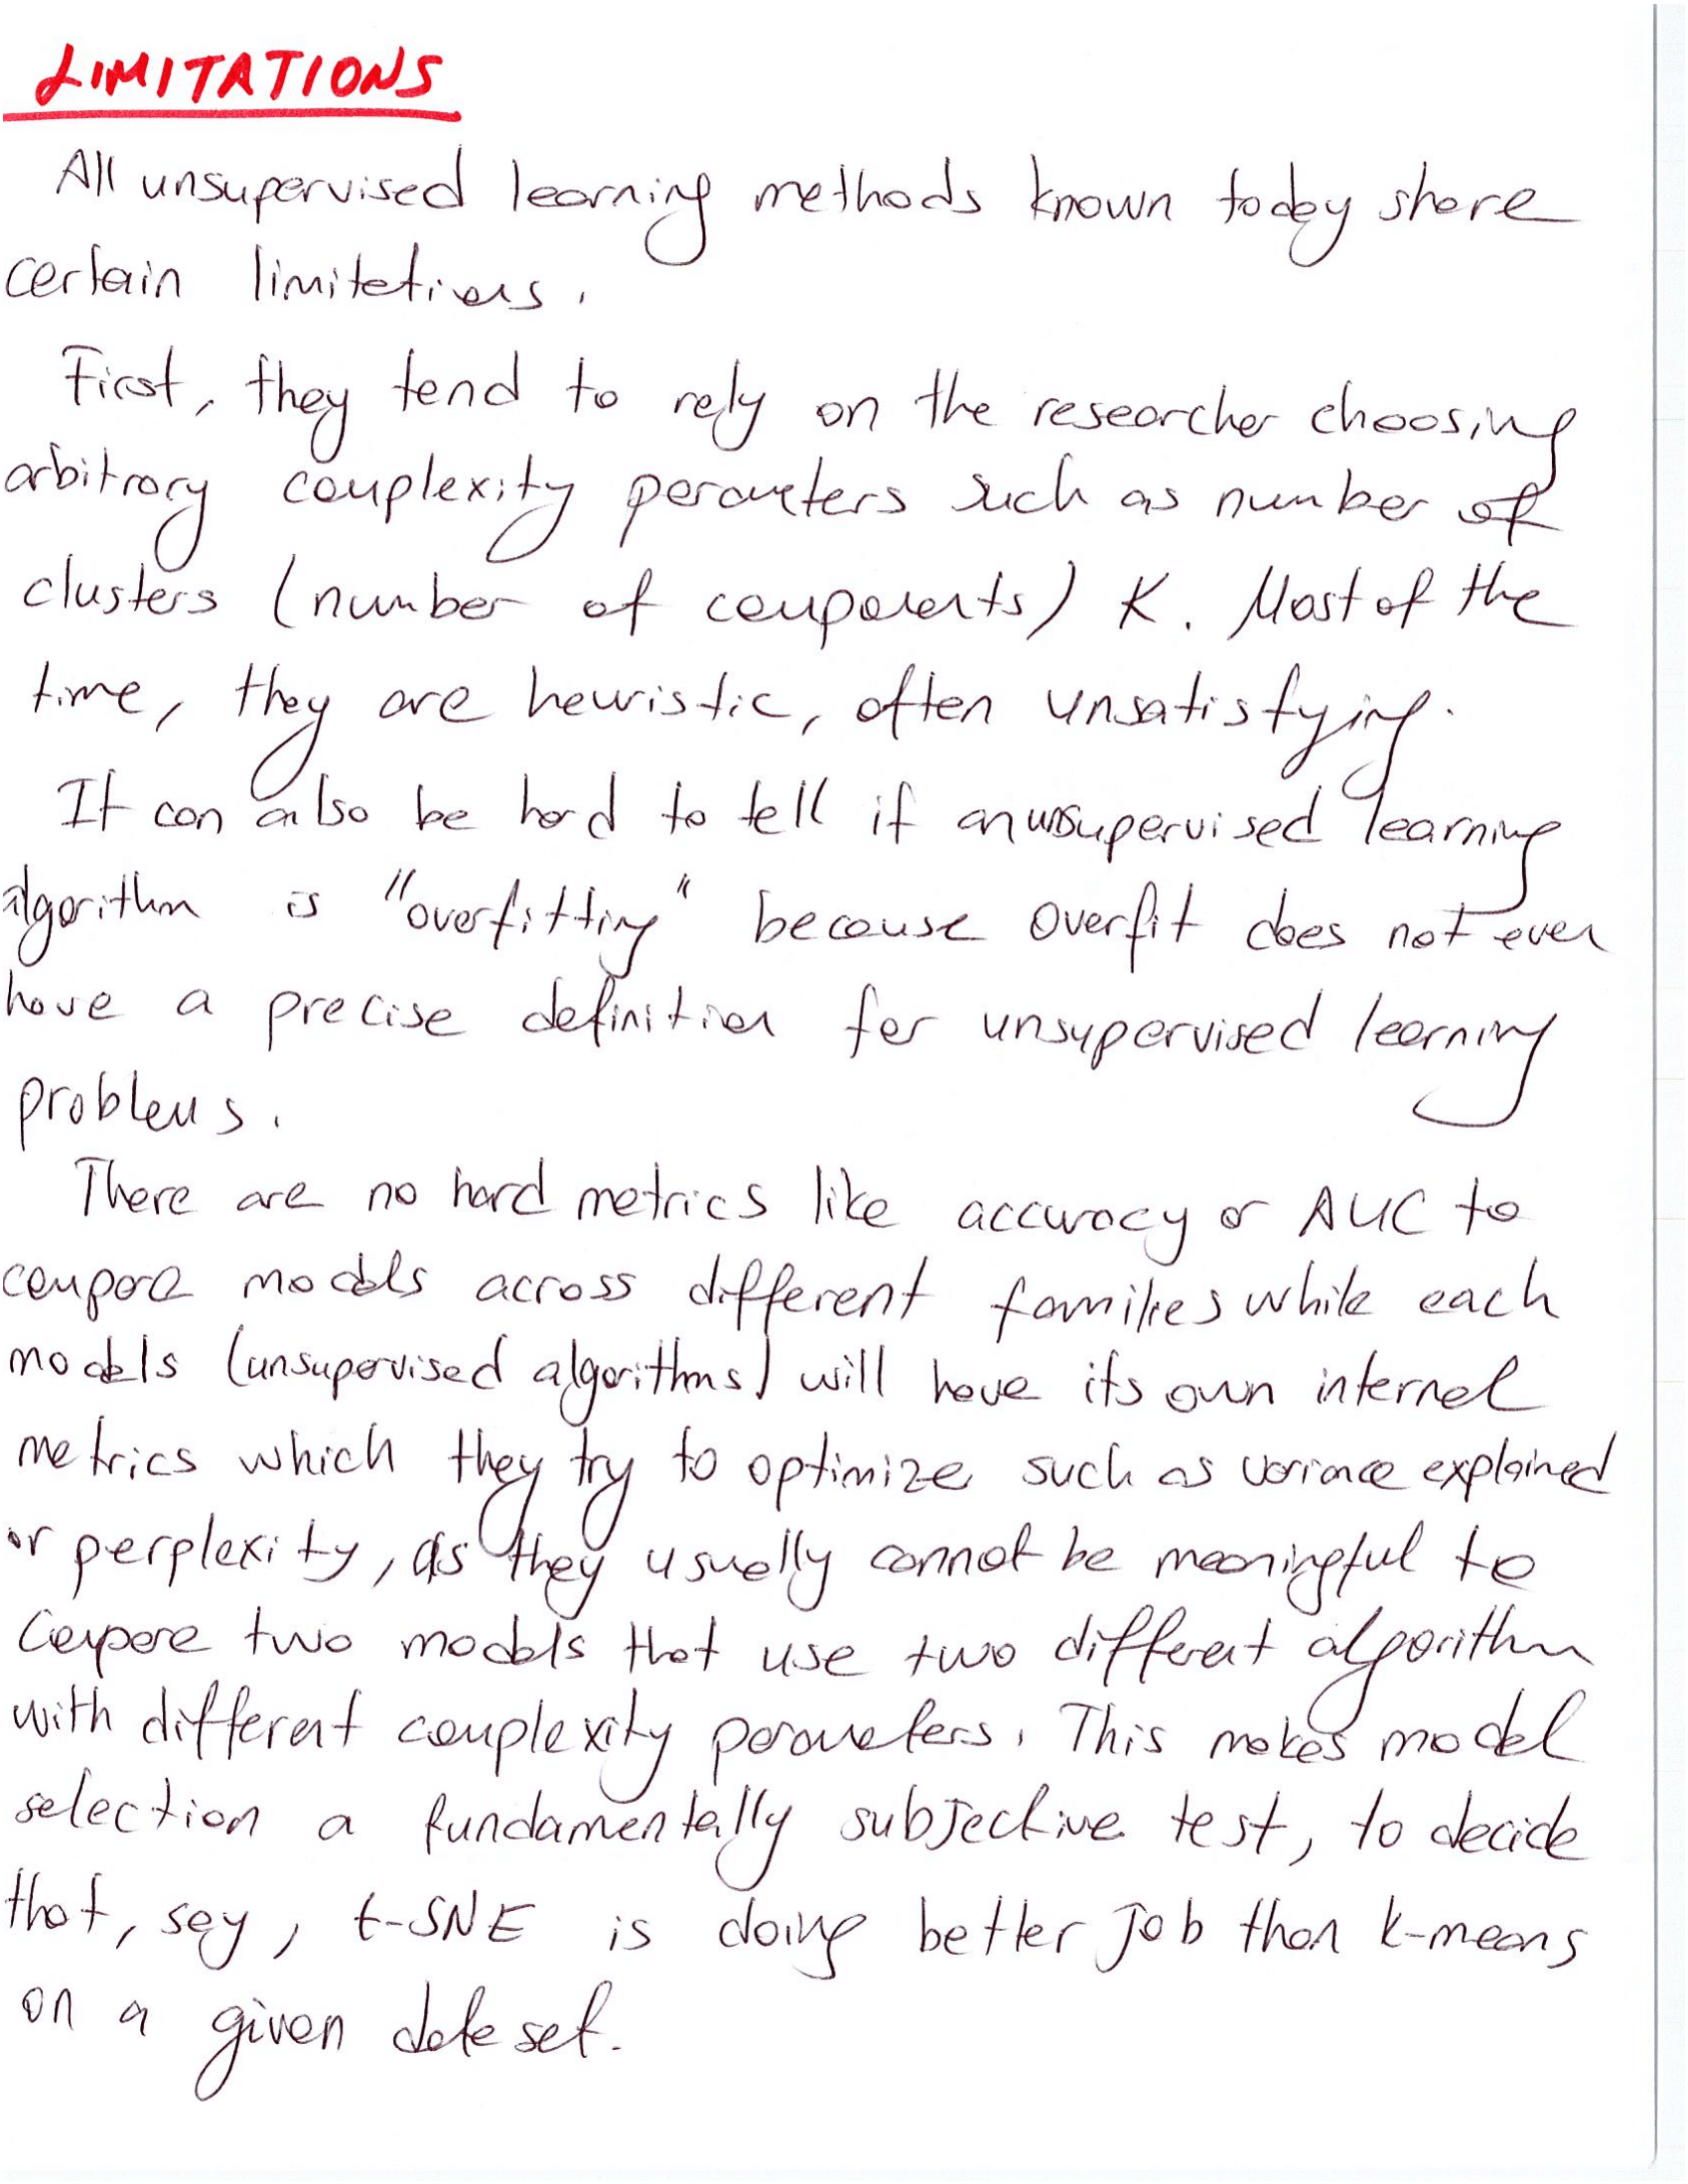 LIMITATIONS
All unsupervised learning methods known today share
certain limitations.
First, they tend to rely on the researcher choosing
arbitrary complexity parameters such as number of
clusters (number of components) K. Most of the
time, they are heuristic, often unsatisfying.
It can also be hard to tell if an unsupervised learning
algorithm is "overfitting" because overfit does not even
have a precise definition for unsupervised learning
problems.
There are no hard metrics like accuracy or AUC to
compare models across different families while each
models (unsupervised algorithms) will have its own internal
metrics which they try to optimize such as variance explained
or perplexity, as they usually cannot be meaningful to
Compare two models that use two different algorithm
with different complexity parameters. This makes model
selection a fundamentally subjective test, to decide
that, say, t-SNE is doing better job than k-means
on a given data set.